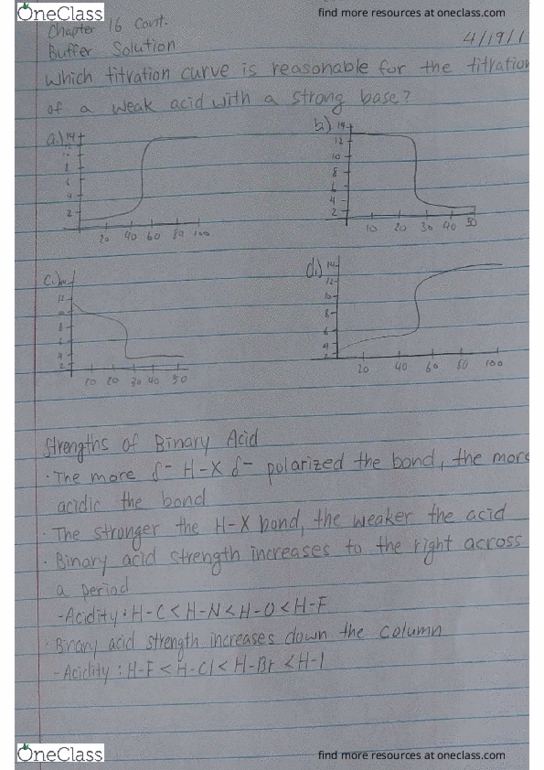 OneClass
find more resources at oneclass.com
Chapter 16 Cont.
4/19/1
Buffer Solution
Which titration curve is reasonable for the titration
of a weak acid with a strong base?
a.) 14
8
6
4
2
20 40 60 80 100
b.) 14
12
10
8
6
4
2
10 20 30 40 50
c.)
12
8
6
4
2
10 20 30 40 50
d.) 14
12
10
8
6
4
20 40 60 80 100
Strengths of Binary Acid
· The more δ- H-X δ- polarized the bond, the more
acidic the bond
· The stronger the H-X bond, the weaker the acid
· Binary acid strength increases to the right across
a period
-Acidity: H-C < H-N < H-O < H-F
· Binary acid strength increases down the column
-Acidity: H-F < H-Cl < H-Br < H-I
OneClass
find more resources at oneclass.com